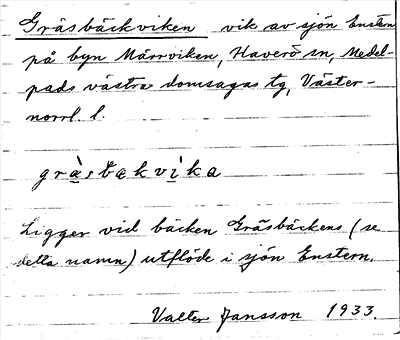 Gräsbäckviken vik av sjön Ensten
på byn Märrviken, Haverö sn, Medel-
pads västra domsagas tg, Väster-
norrl. l.
gràsbækvìka
Ligger vid bäcken Gräsbäckens (se
detta namn) utflöde i sjön Enstern.
Valter Jansson 1933.